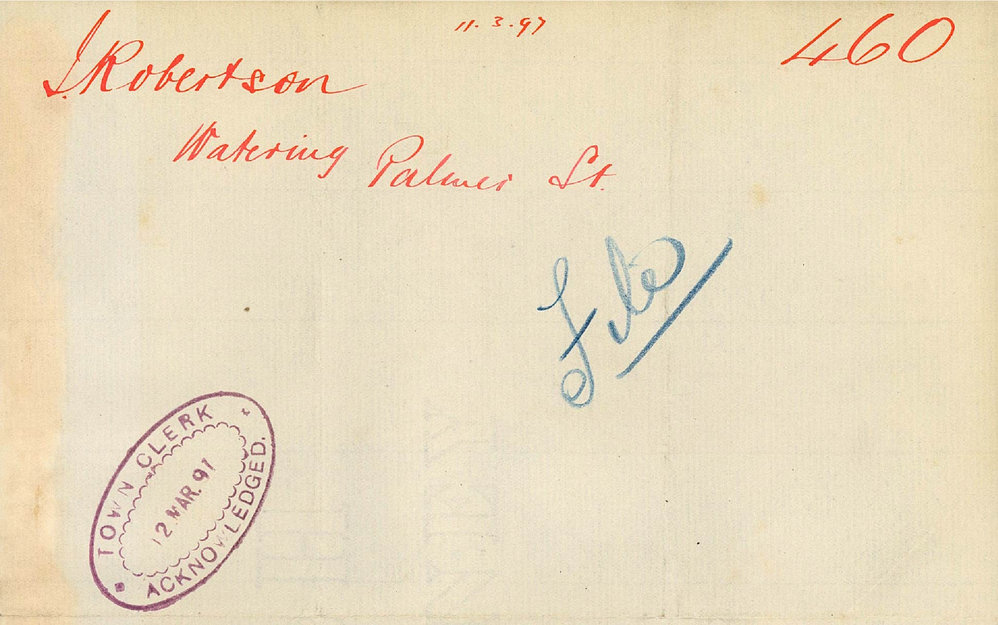 11.3.97
460
J. Robertson
Watering Palmer St.
File
TOWN CLERK
12 MAR. 97
ACKNOWLEDGED.